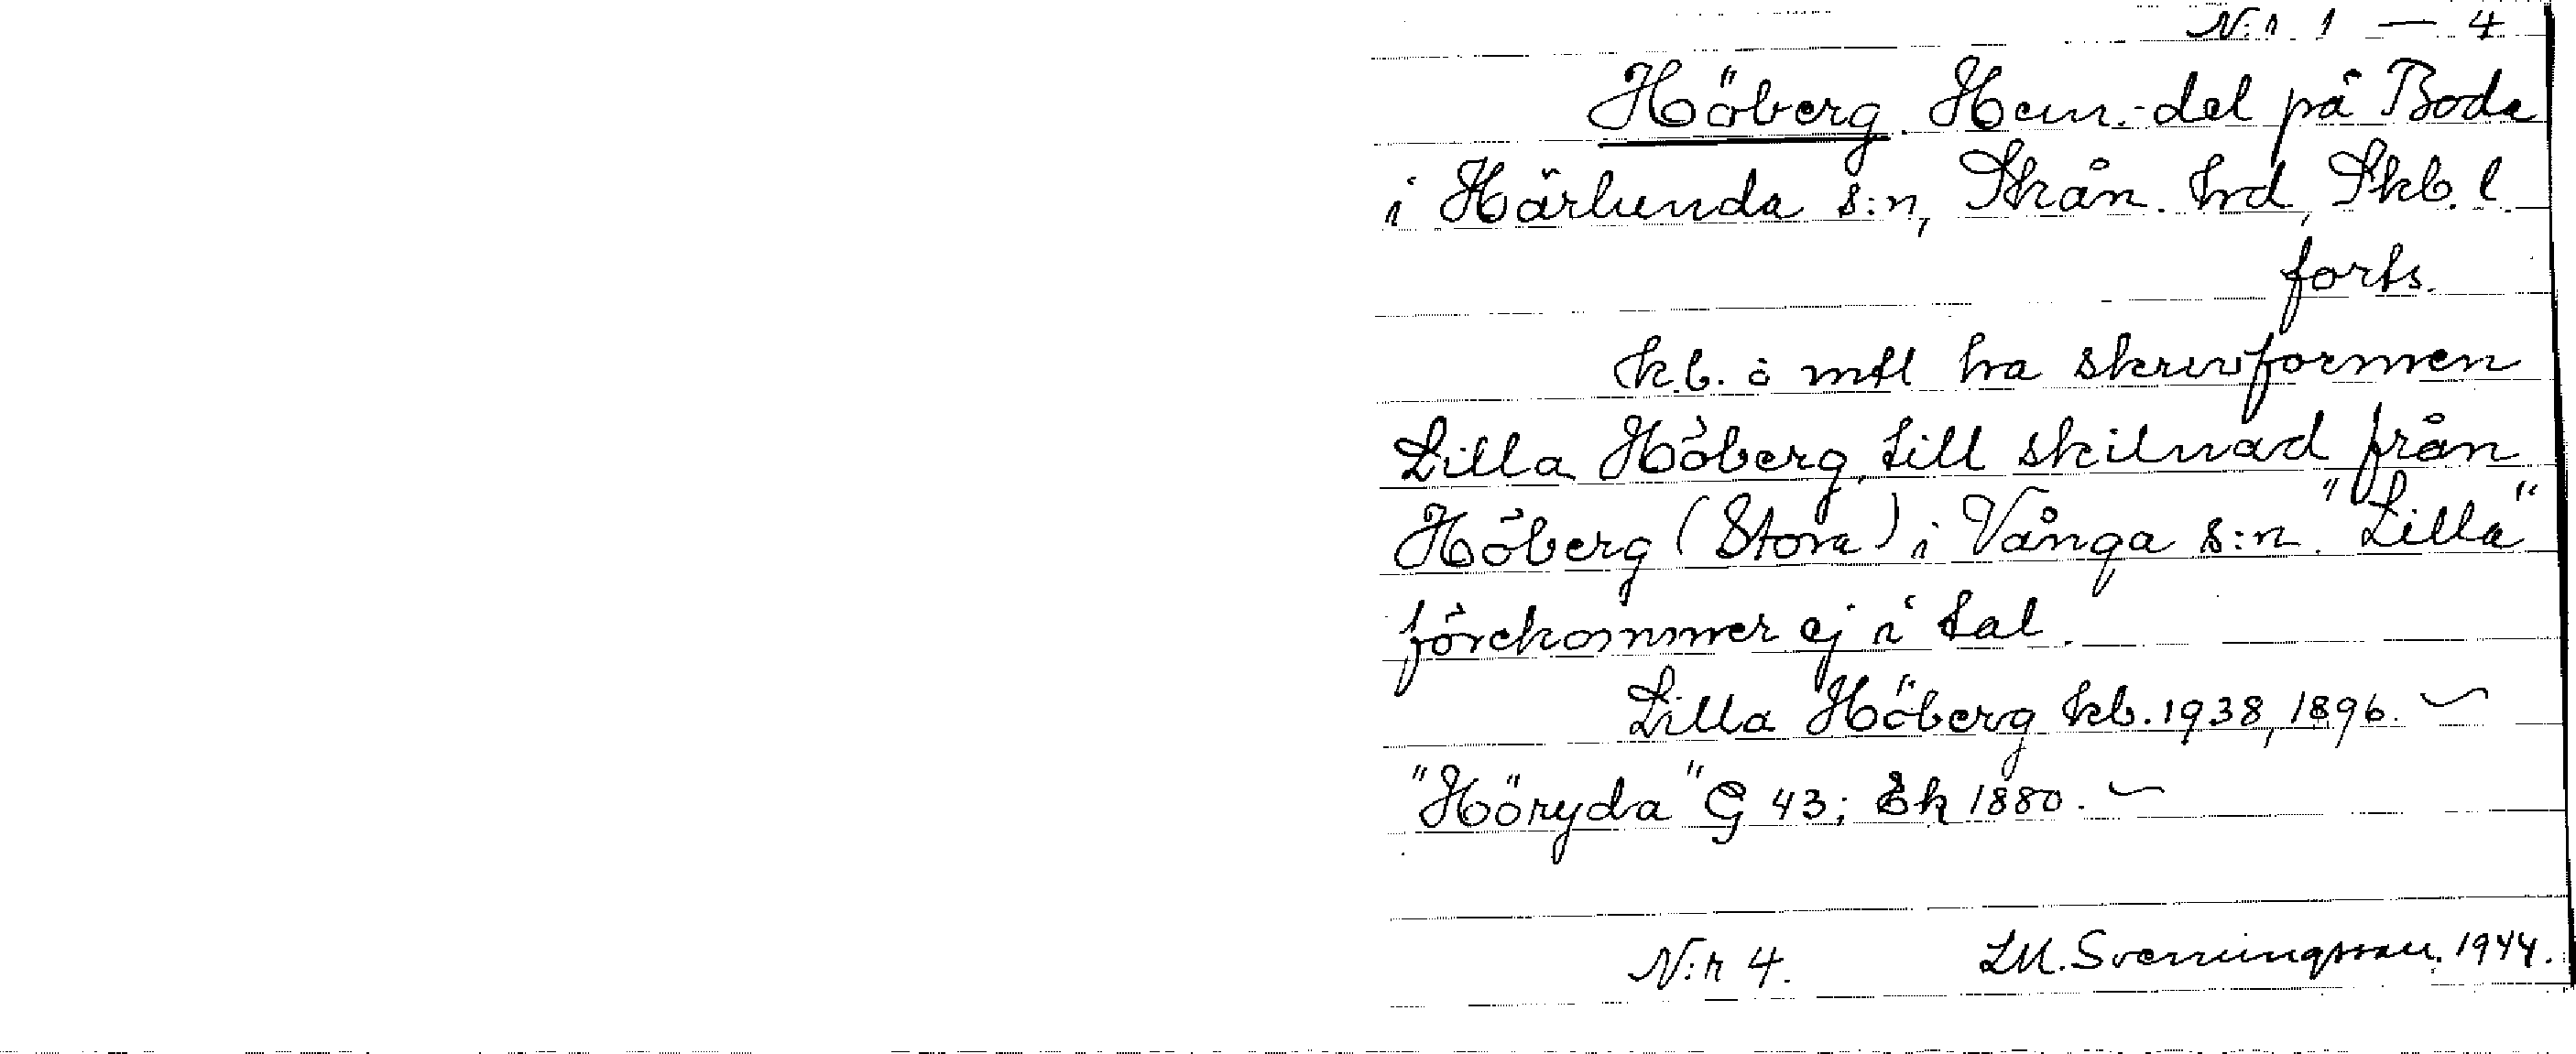 N:r 1 — 4
Höberg. Hem.-del på Boda
i Härlunda s:n, Skån. hd, Skb. l.
forts.
kb. o mtl ha skrivformen
Lilla Höberg, till skilnad från
Höberg (Stora) i Vånga s:n. "Lilla"
förekommer ej i tal.
Lilla Höberg kb. 1938, 1896. ~
"Höryda" G 43; Ek 1880. ~
N:r 4. LM. Svenningsson. 1944.